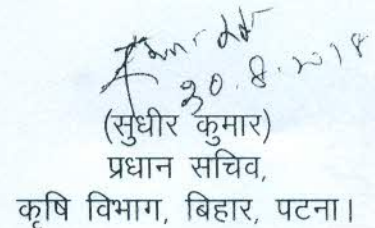 30.8.2018
(सुधीर कुमार)
प्रधान सचिव,
कृषि विभाग, बिहार, पटना।